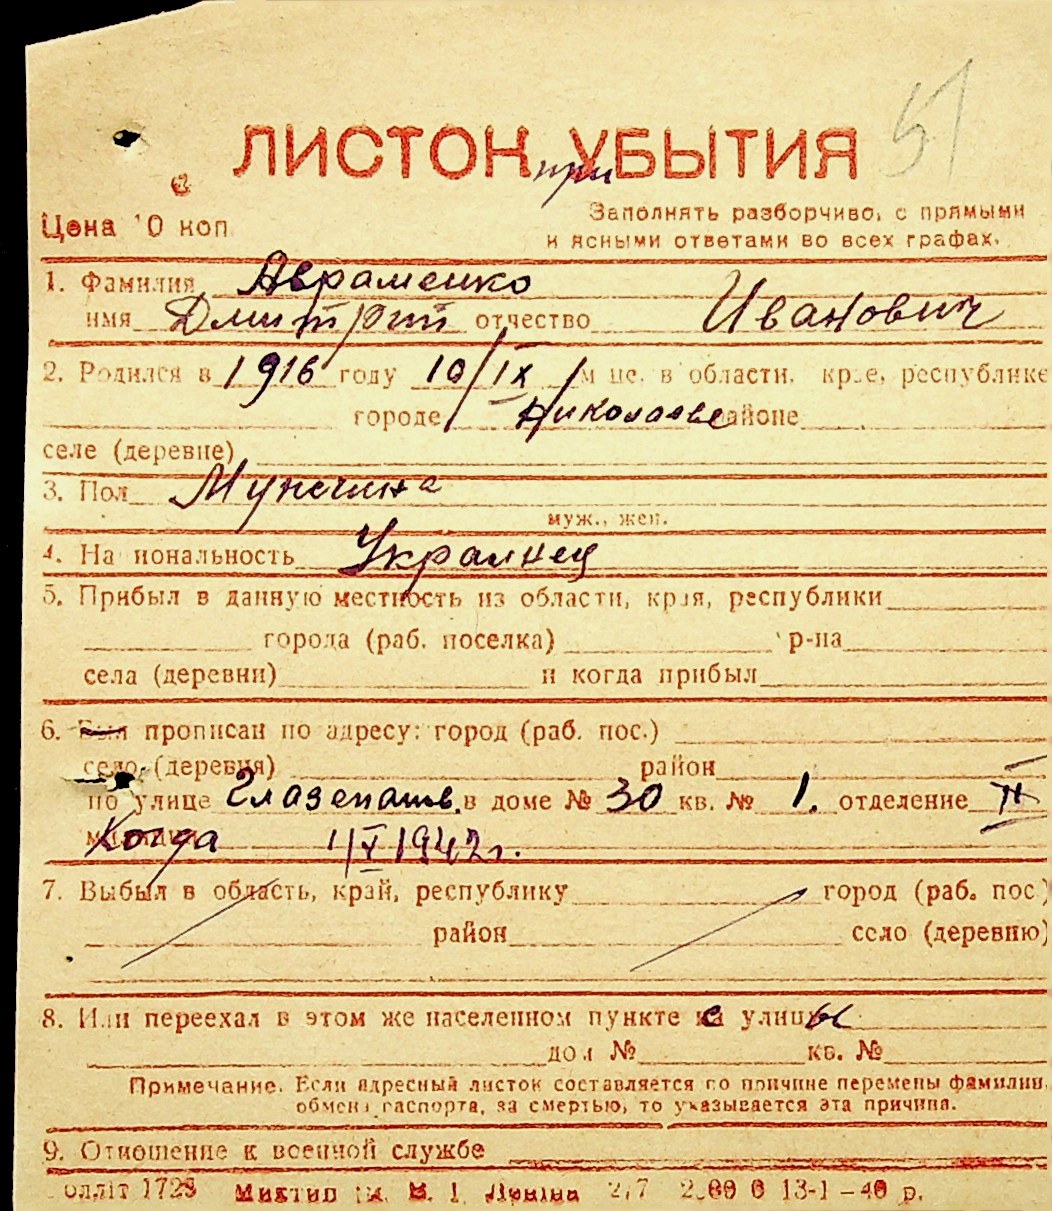 51
ЛИСТОК при УБЫТИЯ
Цена 10 коп
Заполнять разборчиво, с прямыми
и ясными ответами во всех графах.
1. Фамилия Авраменко
имя Дмитрий отчество Иванович
2. Родился в 1916 году 10/IX м-це. в области, крае, республике
городе Николаеве районе
селе (деревне)
3. Пол Мужчина
муж., жен.
4. Национальность Украинец
5. Прибыл в данную местность из области, края, республики
города (раб. поселка) р-на
села (деревни) и когда прибыл
6. Был прописан по адресу: город (раб. пос.)
село, (деревня) район
по улице Глазенапов. в доме № 30 кв. № 1. отделение II
Когда 1/V 1942 г.
7. Выбыл в область, край, республику город (раб. пос.)
район село (деревню)
8. Или переехал в этом же населенном пункте с улицы
дом № кв. №
Примечание. Если адресный листок составляется по причине перемены фамилии,
обмена паспорта, за смертью, то указывается эта причина.
9. Отношение к военной службе
олліт 1728 13-1-40 р.